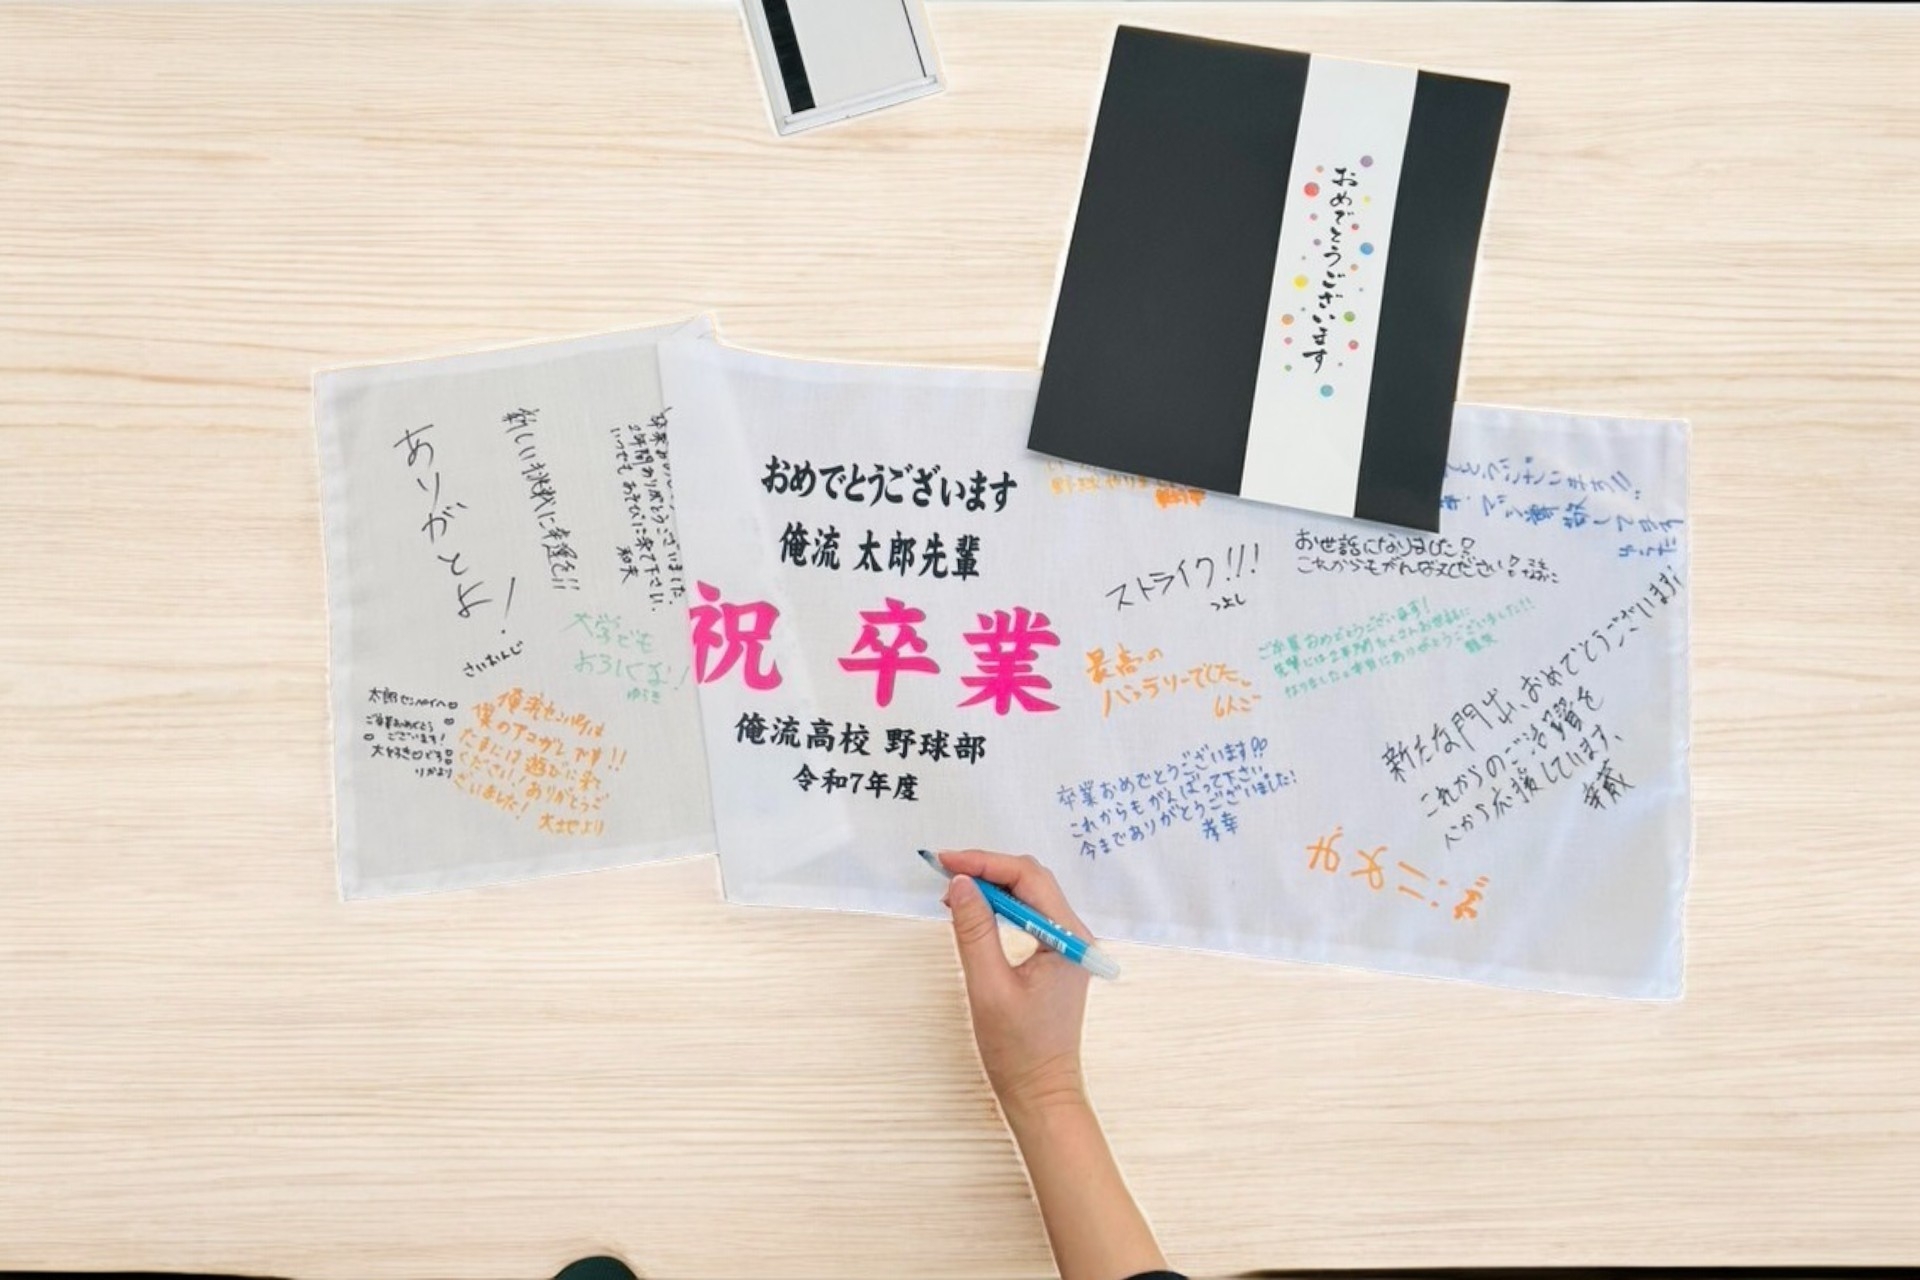 おめでとうございます
ありがとよ!
さいおんじ
新しい挑戦に幸運を!!
2年間ありがとうございました。
いつでもあそびに来て下さい。
和夫
大学でも
太郎センパイへ
ご卒業おめでとう
ございます!
大好きです
りかより
俺流センパイは
僕のアコガレです!!
たまには遊びに来て
ください!ありがとうご
ざいました!
大地より
おめでとうございます
俺流 太郎先輩
祝 卒業
俺流高校 野球部
令和7年度
野球
ストライク!!!
つよし
お世話になりました
これからもがんばってください
最高の
バッテリーでした。
ご卒業おめでとうございます!
先輩には2年間たくさんお世話に
なりました。本当にありがとうございました!!
卒業おめでとうございます
これからもがんばって下さい
今までありがとうございました!
孝幸
新たな門出、おめでとうございます!
これからのご活躍を
心から応援しています。
幸蔵